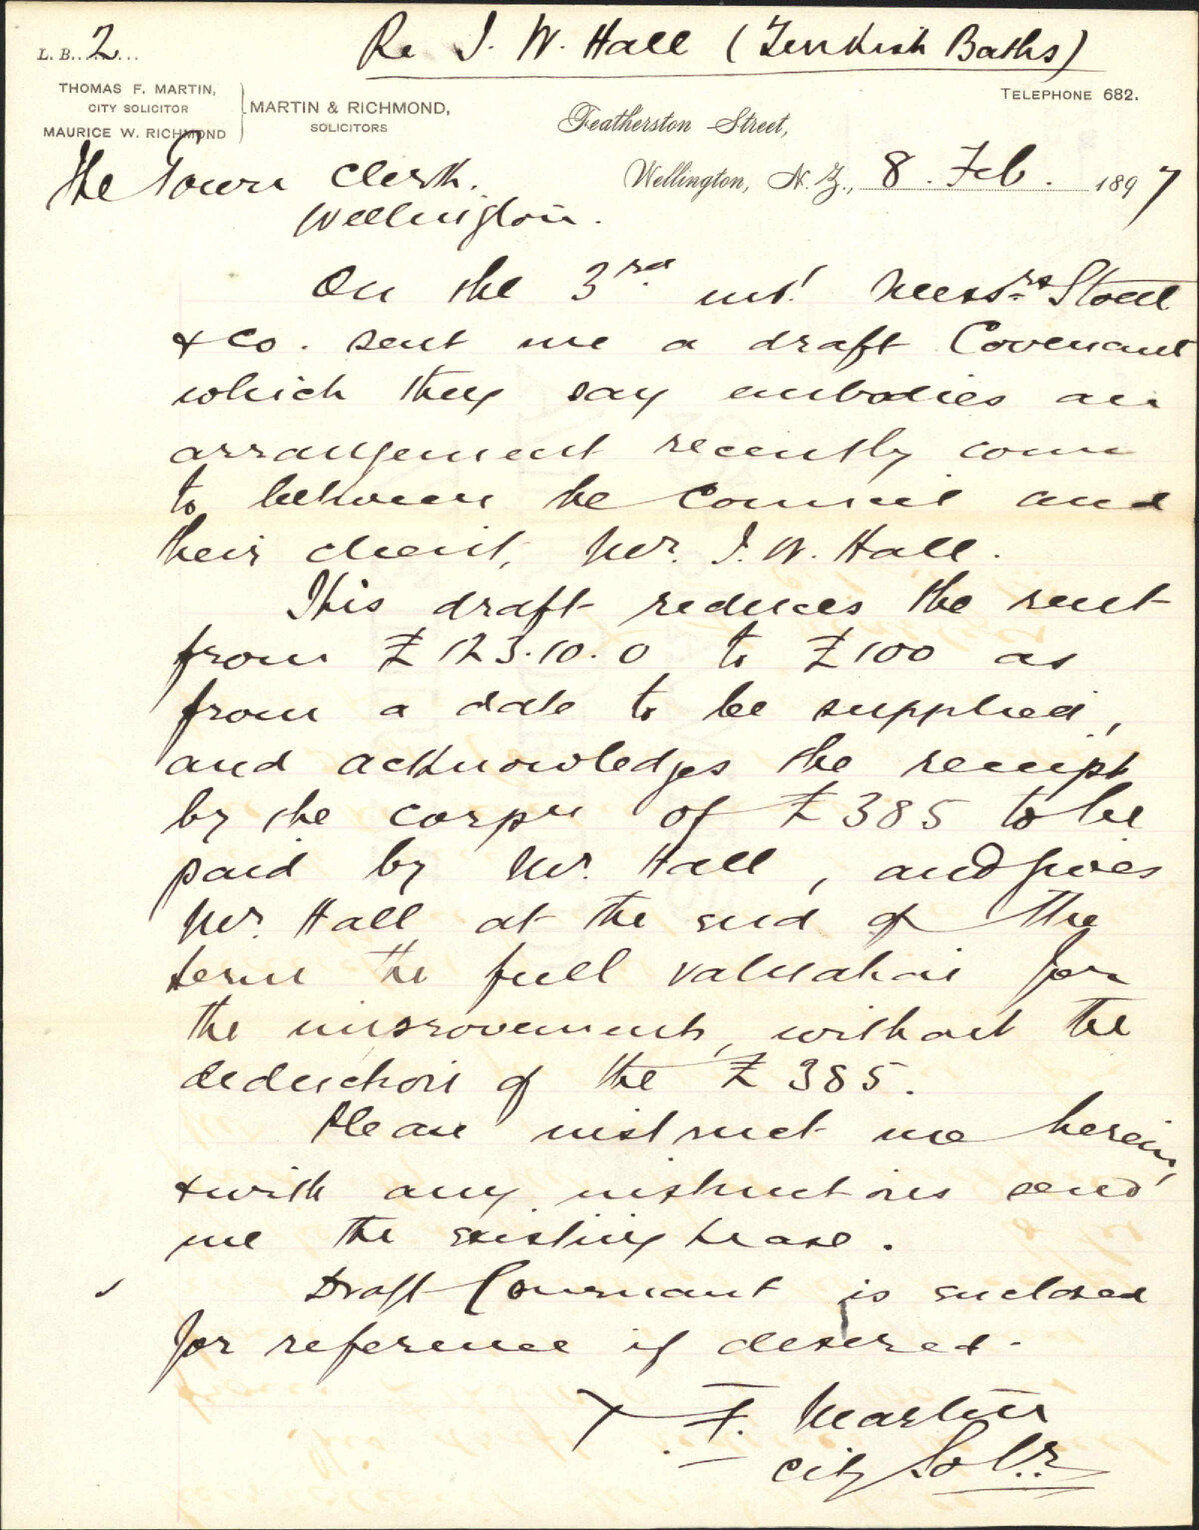 L. B. 2
Re J. W. Hall (Turkish Baths)
THOMAS F. MARTIN,
CITY SOLICITOR
MAURICE W. RICHMOND
MARTIN & RICHMOND,
SOLICITORS
TELEPHONE 682.
Featherston Street,
Wellington, N. Z., 8. Feb. 1897
The Town Clerk.
Wellington.
On the 3rd. inst. Messrs Stout
& Co. sent me a draft Covenant
which they say embodies an
arrangement recently come
to between the Council and
their client, Mr. J. W. Hall.
This draft reduces the rent
from £123.10.0 to £100 as
from a date to be supplied,
and acknowledges the receipt
by the corpn of £385 to be
paid by Mr. Hall, and gives
Mr. Hall at the end of the
term the full valuation for
the improvements, without the
deduction of the £385.
Please instruct me herein,
& with any instructions send
me the existing lease.
Draft Covenant is enclosed
for reference if desired.
T. F. Martin
City Solr.